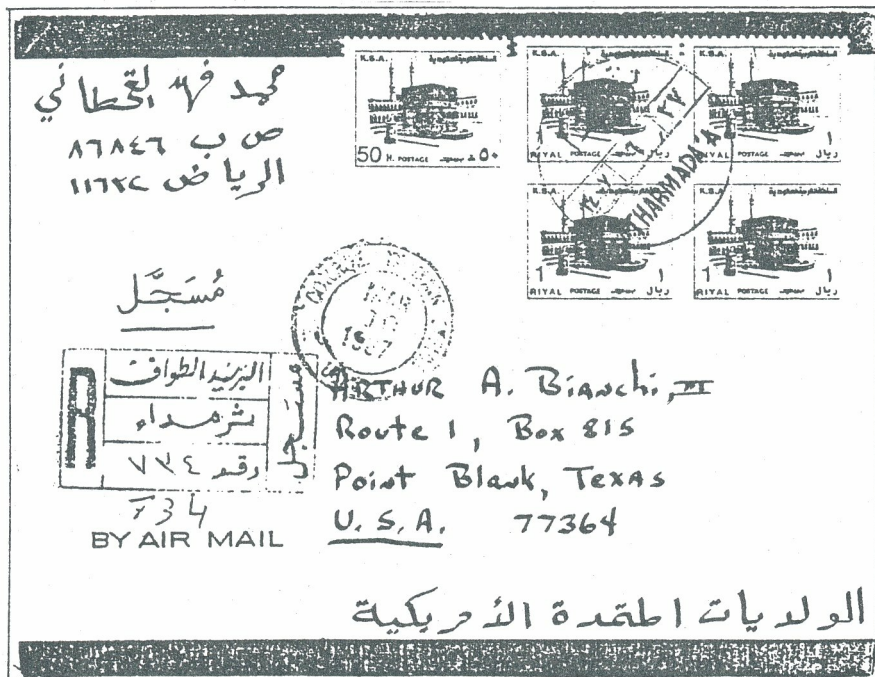 محمد فهد القحطاني
ص ب ٨٦٨٤٦
الرياض ١١٦٣٢
K.S.A.
50 H. POSTAGE ٥٠
K.S.A.
RIYAL POSTAGE ريال ١
K.S.A.
RIYAL POSTAGE ريال ١
K.S.A.
1 RIYAL POSTAGE ريال ١
K.S.A.
1 RIYAL POSTAGE ريال ١
THARMADA'A
مُسَجَّل
1987
R
البريد الطواف
ثرمداء
رقم ٧٣٤
مسجل
734
BY AIR MAIL
ARTHUR A. Bianchi, III
Route 1, Box 815
Point Blank, Texas
U.S.A. 77364
الولايات المتحدة الأمريكية